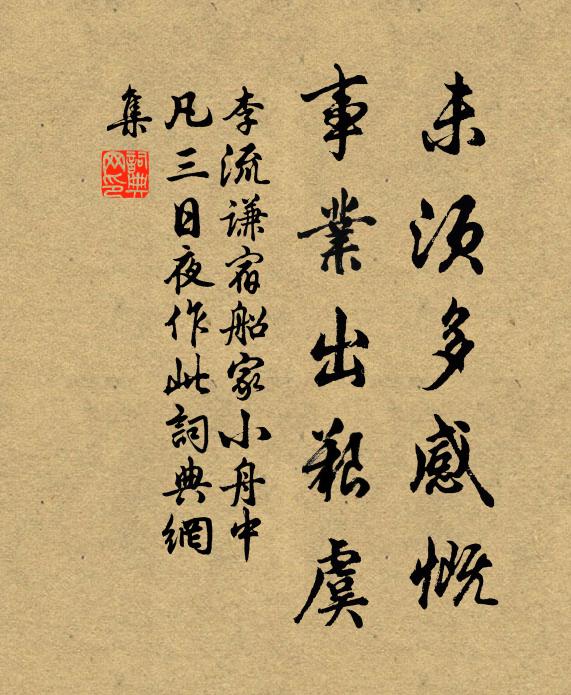 未須多感慨
事業出艱虞
李流謙宿船家小舟中
凡三日夜作此詞典網
集
詞典網印